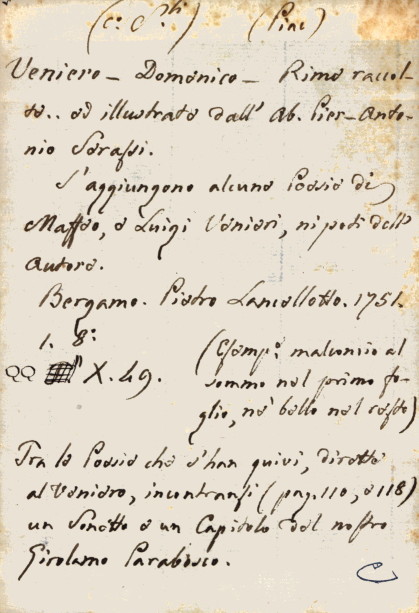 (c. C.th) (Piac)
Veniero – Domenico – Rime raccol-
te.. ed illustrate dall' Ab. Pier-Anto-
nio Serassi.
S'aggiungono alcune Poesie di
Maffeo, e Luigi Venieri, nipoti dell'
Autore.
Bergamo. Pietro Lancellotto. 1751.
1. 8:
QQ X. 49.
(Esemp: malconcio al
sommo nel primo fo-
glio, nè bello nel resto)
Tra le Poesie che s'han quivi, dirette
al Veniero, incontransi (pag. 110, e 118)
un Sonetto e un Capitolo del nostro
Girolamo Parabosco.
C